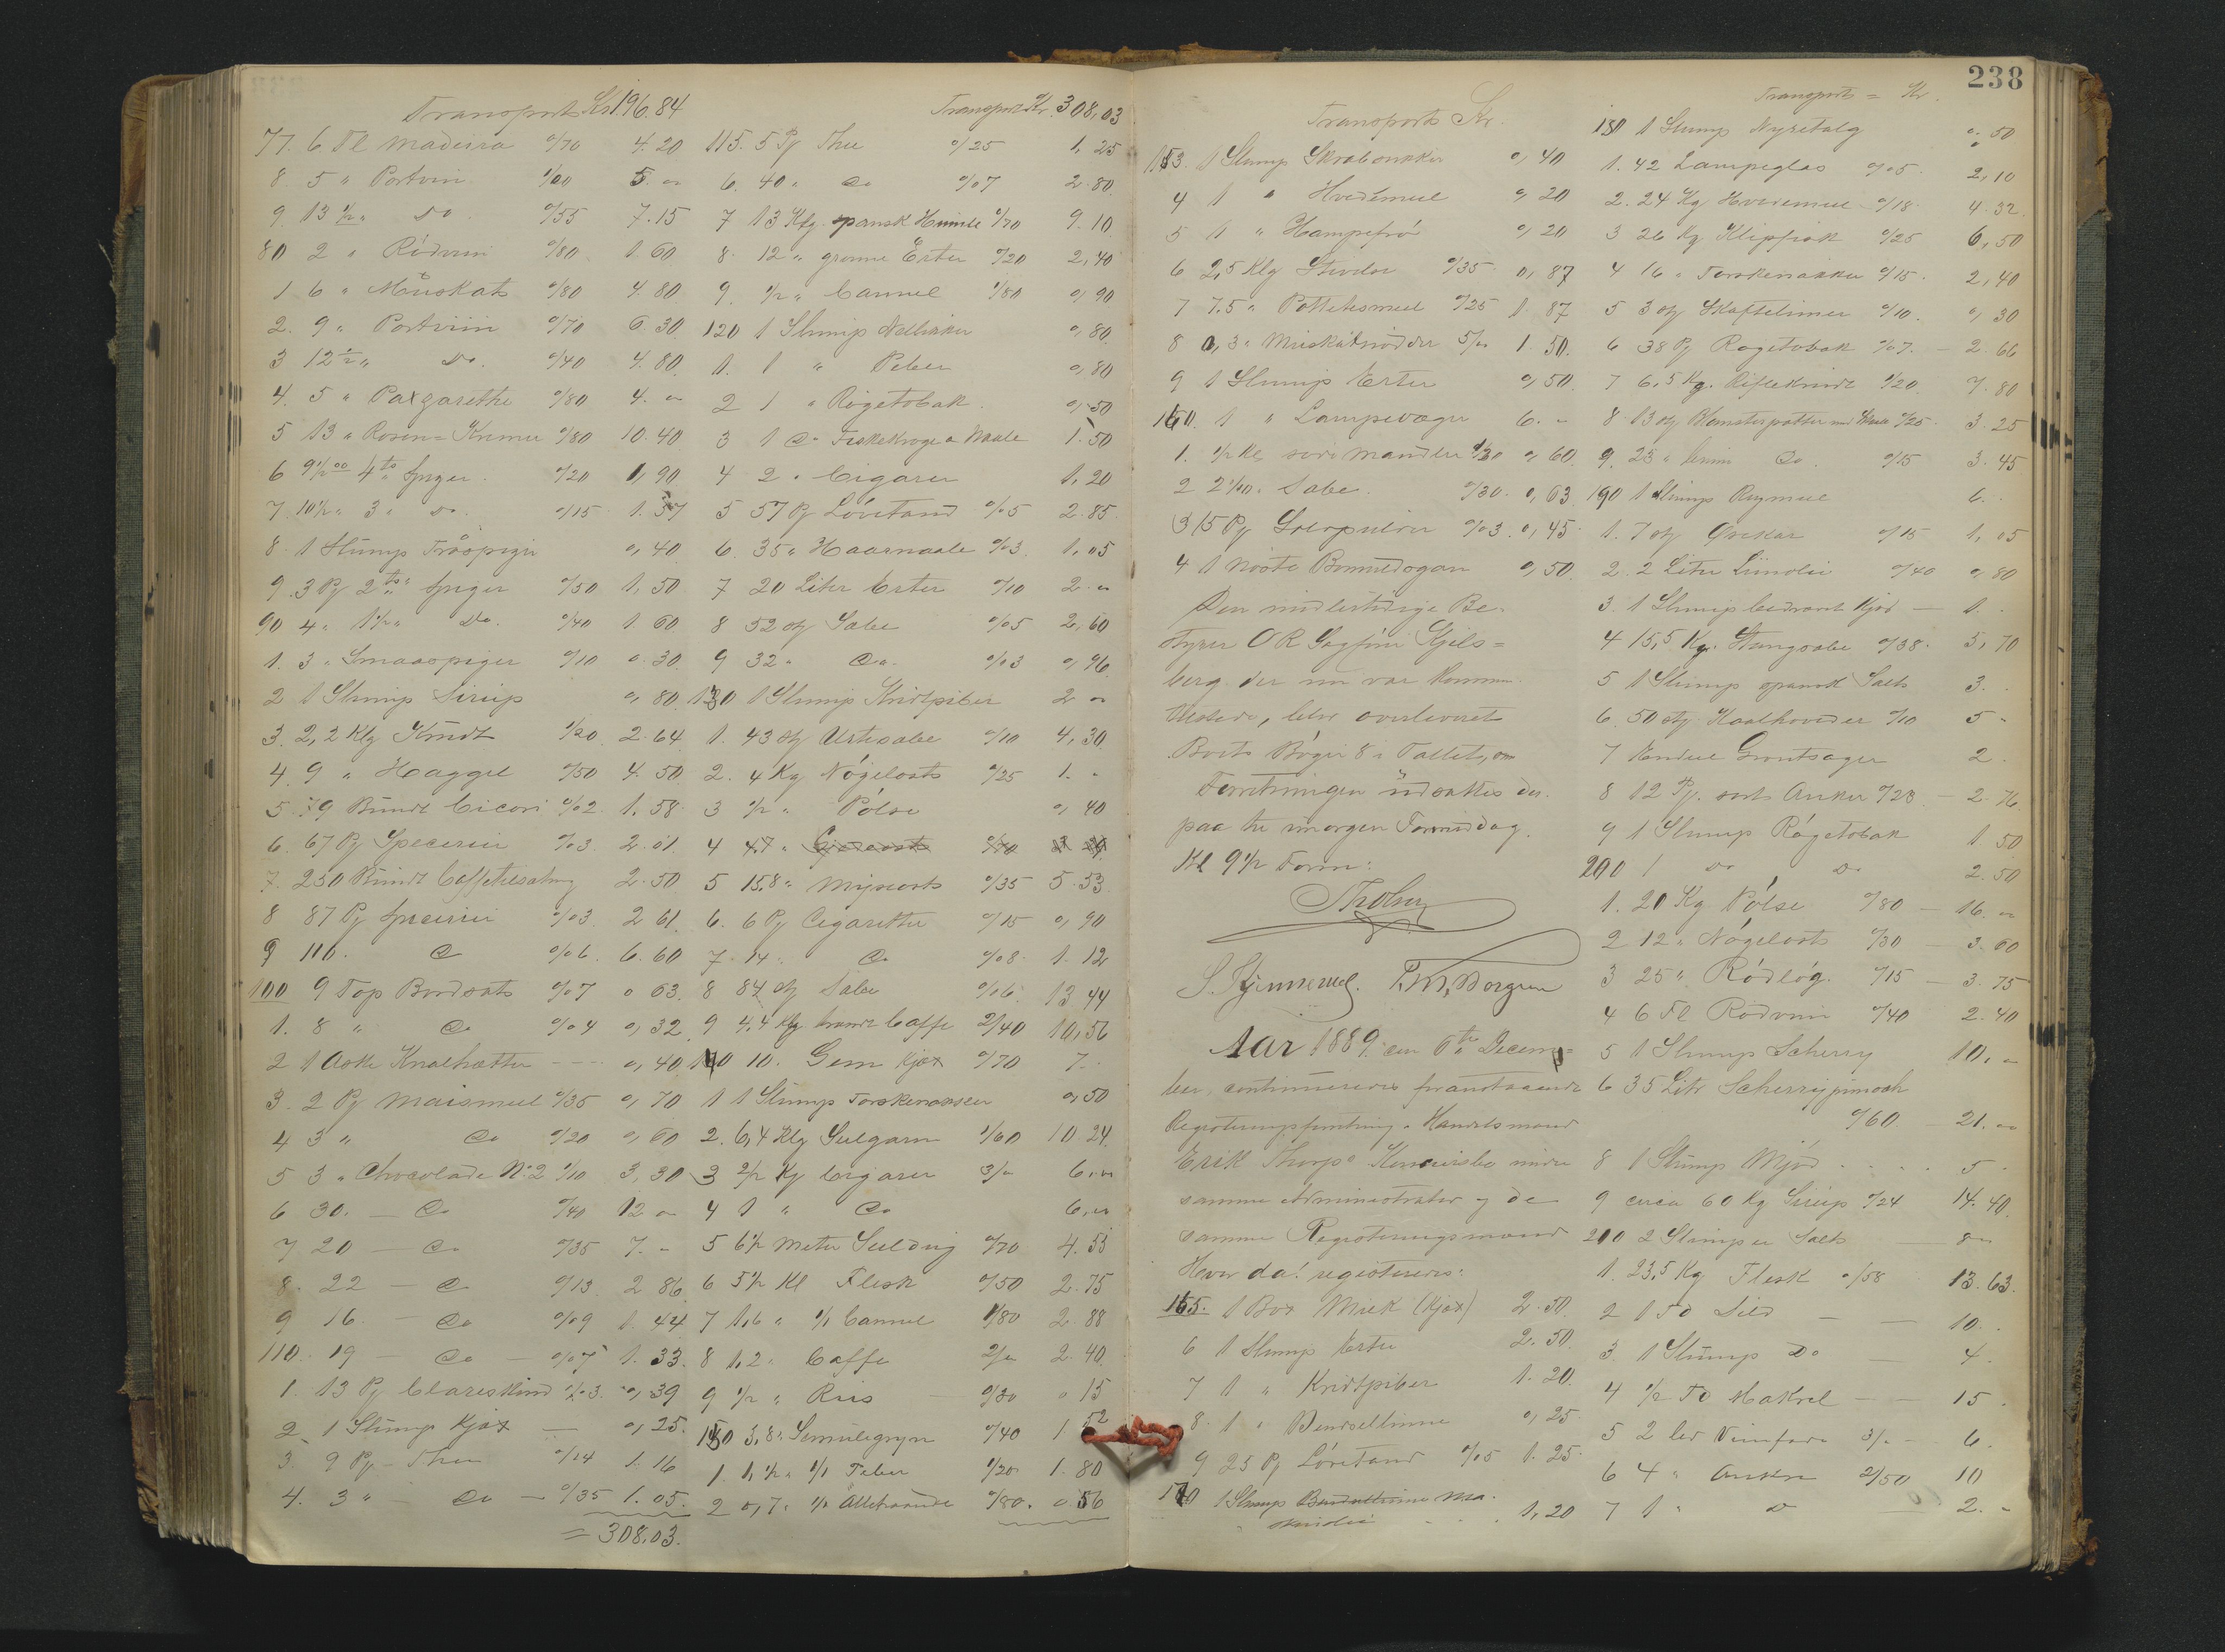 Transport Kr 196.84
77. 6 Fl Madeira 0/70 4.20
8. 5 " Portvin 1/00 5. "
9. 13 1/2 " Do. 0/55 7.15
80 2 " Rödvin 0/80 1.60
1 6 " Muskat 0/80 4.80
2. 9 " Portviin 0/70 6.30
3 12 1/2 " Do. 0/40 4.80
4. 5 " Paxgarethe 0/80 4. "
5 13 " Rosen= Kremer 0/80 10.40
6 9 1/2 00 4 to Spiger. 0/20 1,90
7. 10 1/2 " 3 " Do 0/15 1.57
8. 1 Slump Tråspiger 0,40
9. 3 Pg 2 to " Spiger 0/50 1,50
90 4 " 1 1/2 " Do. 0/40 1 60
1. 3 " Smaaspiger 0/10 0.30
2 1 Slump Sirup 0,80
3. 2,2 Klg Kandz 1/20 2.64
4. 9 " Haggel 0/50 4.50
5. 79 Bundt Cicori 0/02 1.58
6. 67 Pg Specerier 0/03 2.01
7. 250 Bundt Caffetilsatng 2.50
8 87 Pg Specerier 0/03 2 61
9 110. Do 0/06. 6.60
100 9 Top Bordsalt 0/07 0 63
1. 8 " Do 0/04 0,32
2 1 Æske Knalhætter 0,40
3. 2 Pg Maismeel 0/35 0,70
4 3 " Do 0/20 0,60
5 3 " Chocolade No 2 1/10 3,30
6 30. — Do 0/40 12 "
7 20 — Do 0/35 7. "
8. 22 — Do 0/13 2 86
9 16. — Do 0/09 1.44
110. 19 — Do — 0/07 1.33
1. 13 Pg Clareskind 0/03. 0,39
2. 1 Slump Kjæx — 0,25.
3. 9 Pg Thee 0/14 1.16
4. 3 " — Do — 0/35 1.05.
= 308.03.
Transport Kr. 308,03
115. 5 Pg Thee 0/25 1,25
6. 40 " Do 0/07 2.80
7 13 Klg. spansk Humle 0/70 9.10
8. 12 " grønne Erter 0/20 2,40
9. 1/2 " Cannel 1/80 0,90
120 1 Slump Nelliker 0,80
1. 1 " Peber 0,80
2 1 " Røgetobak. 0,50
3 1 Do Fiskekroge & Naale 1.50
4 2 " Cigarer 1,20
5 57 Pg Lövetand 0/05 2.85
6. 35 " Haarnaale 0/03. 1,05
7 20 Liter Erter 0/10 2. "
8 52 stg Sæbe 0/05 2,60
9 32 " Do. 0/03 0,96
130 1 Slump Kridtpiber 2 "
1. 43 stg Urtesæbe 0/10 4,30
2. 4 Kg Nögelost 0/25 1. "
3 1/2 " Pölse 0,40
4 4.7 "
5 15.8 " Myseost 0/35 5.53
6. 6 Pg Cigaretter 0/15 0,90
7. 14. Do 0/08. 1.12
8 84 stg Sæbe 0/16. 13 44
9 4.4 Klg brændt Caffe 2/40 10,56
140 10. Gem Kjæx 0/70 7. "
1 1 Slump Torskenakker 0,50
2. 6,4 Klg Seelgarn 1/60 10.24.
3 2/2 Kg Cigarer 3/" 6. "
4 1 " Do 6, "
5 6 1/2 Meter Seeldug 0/70 4.55
6 5 1/2 Kl Flesk 0/50 2.75
7 1,6 " 1/1 Cannel 1/80 2.88
8 1,2 " Caffe 2/" 2.40
9 1/2 " Riis 0/30 0 15
150 3,8 " Semulegryn 0/40 1.52
1. 1 1/2 " 1/1 Peber 1/20 1.80
2 0,7 " 1/1 Allehaande 0/80. 0 56
Transport Kr.
153. 1 Slump Skrabsukker 0,40
4 1 " Hvedemeel 0,20
5 1 " Hampefrö 0,20
6 2,5 Klg Stivelse 0/35 0,87
7 7.5 " Pottetesmeel 0/25 1.87
8 0,3 " Muskatnødder 5/" 1.50.
9 1 Slump Erter 0,50.
160. 1 " Lampevæger 6. "
1. 1/2 Kl søde Mandler 1/20 0,60.
2 2 1/10 " Sæbe. 0/30. 0,63
3 15 Pg 0/03. 0,45
4 1 Nöste Bomuldsgarn 0,50
Den midlertidige Be-
styrer O R Sagfører Kjels=
berg der nu var kommen
tilstede, blev overleveret
Boets Böger 8 i Tallet, om
Forretningen udsattes der-
paa til imorgen Formiddag.
Kl 9 1/2 Form:
Aar 1889. den 6te Decem-
ber, continueredes foranstaaende
Registreringsforretning i Handelsmand
Erik Thorps Konkursbo under
samme Administrator og de
samme Registreringsmænd
Hvor da! registreredes:
165. 1 Box Miek (Kjæx) 2.50.
6 1 Slump Erter 2.50.
7 1 " Kridtpiber 1.20.
8. 1 " Bendsellinne 0,25
9 25 Pg Lövetand 0/05 1.25
170 1 Slump Bendsellinne Ma-
skinolie 1,20
238
Transport = Kr.
180 1 Slump Nyretalg 0,50
1. 42 Lampeglas 0/05. 2,10
2. 24 Kg Hvedemeel 0/18. 4.32.
3 26 Kg Klipfisk 0/25 6,50
4 16 " Torskenakker 0/15. 2,40
5 3 stg Skaftelimer 0/10. 0,30
6 38 Pg Røgetobak 0/07. — 2.66
7 6,5 Kg. Riflekrudt 1/20 7.80
8. 13 stg Blomsterpotter med Skaal 0/25 3.25
9. 23 " Do. 0/15 3.45
190 1 Slump Rugmeel 6. "
1. 7 stg Öreskar 0/15 1,05
2. 2 Liter Linolie 0/40 0,80
3. 1 Slump bedærvet Kjød — 1. "
4 15,5 Kg. Stangsæbe 0/38. 5,70
5 1 Slump spansk Salt 3. "
6. 50 stg Kaalhoveder 0/10 5 "
7 Endeel Grøntsager 2 "
8 12 Pg. sort Anker 0/23 — 2.76
9 1 Slump Rögetobak 1 50
200 1 Do Do 2.50
1. 20 Kg Pölse 0/80 — 16. "
2 12 " Nögelost 0/30 — 3.60
3 25 " Rödlög. 0/15 — 3.75
4 6 Fl Rödvin 0/40 2.40
5 1 Slump Scherry 10. "
6 35 Litr Scherry
0/60 21. "
8 1 Slump Mjöd 5 "
9 circa 60 Kg Sirup 0/24 14.40
210 2 Slumper Salt — 8 "
1. 23,5 Kg Flesk 0/58 13.63.
2 1 Td Sild — — 10. "
3. 1 Slump Do — 4. "
4 1/2 Td Makrel — — 15. "
5 2 3/" — 6. "
6 4 " Anker 2/50 10
7 1 " Do — 2. "